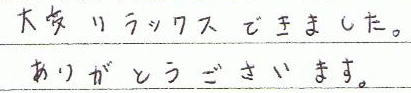 大変リラックスできました。
ありがとうございます。